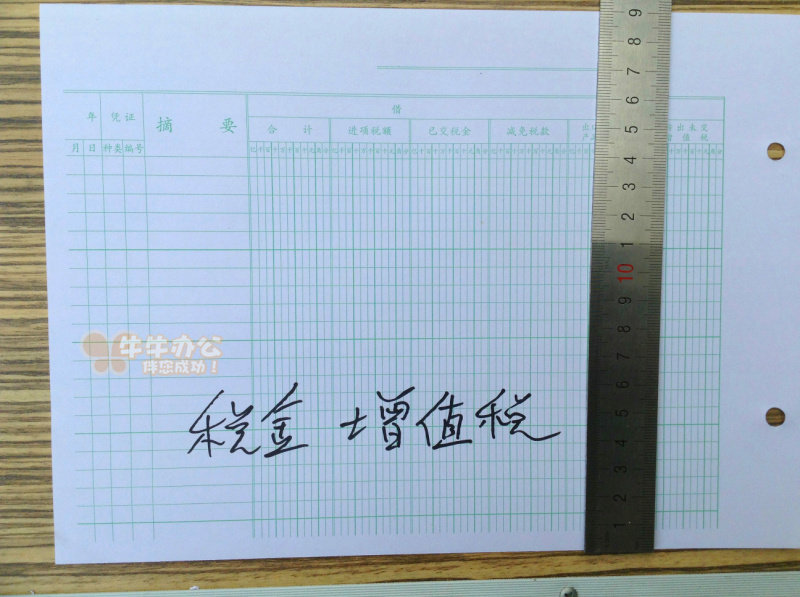 借
年 凭证 摘 要 合 计 进项税额 已交税金 减免税款 出 未 交
月 日 种类 编号 值 税
牛牛办公
伴您成功！
税金 增值税
9
8
7
6
5
4
3
2
1
10
9
8
7
6
5
4
3
2
1